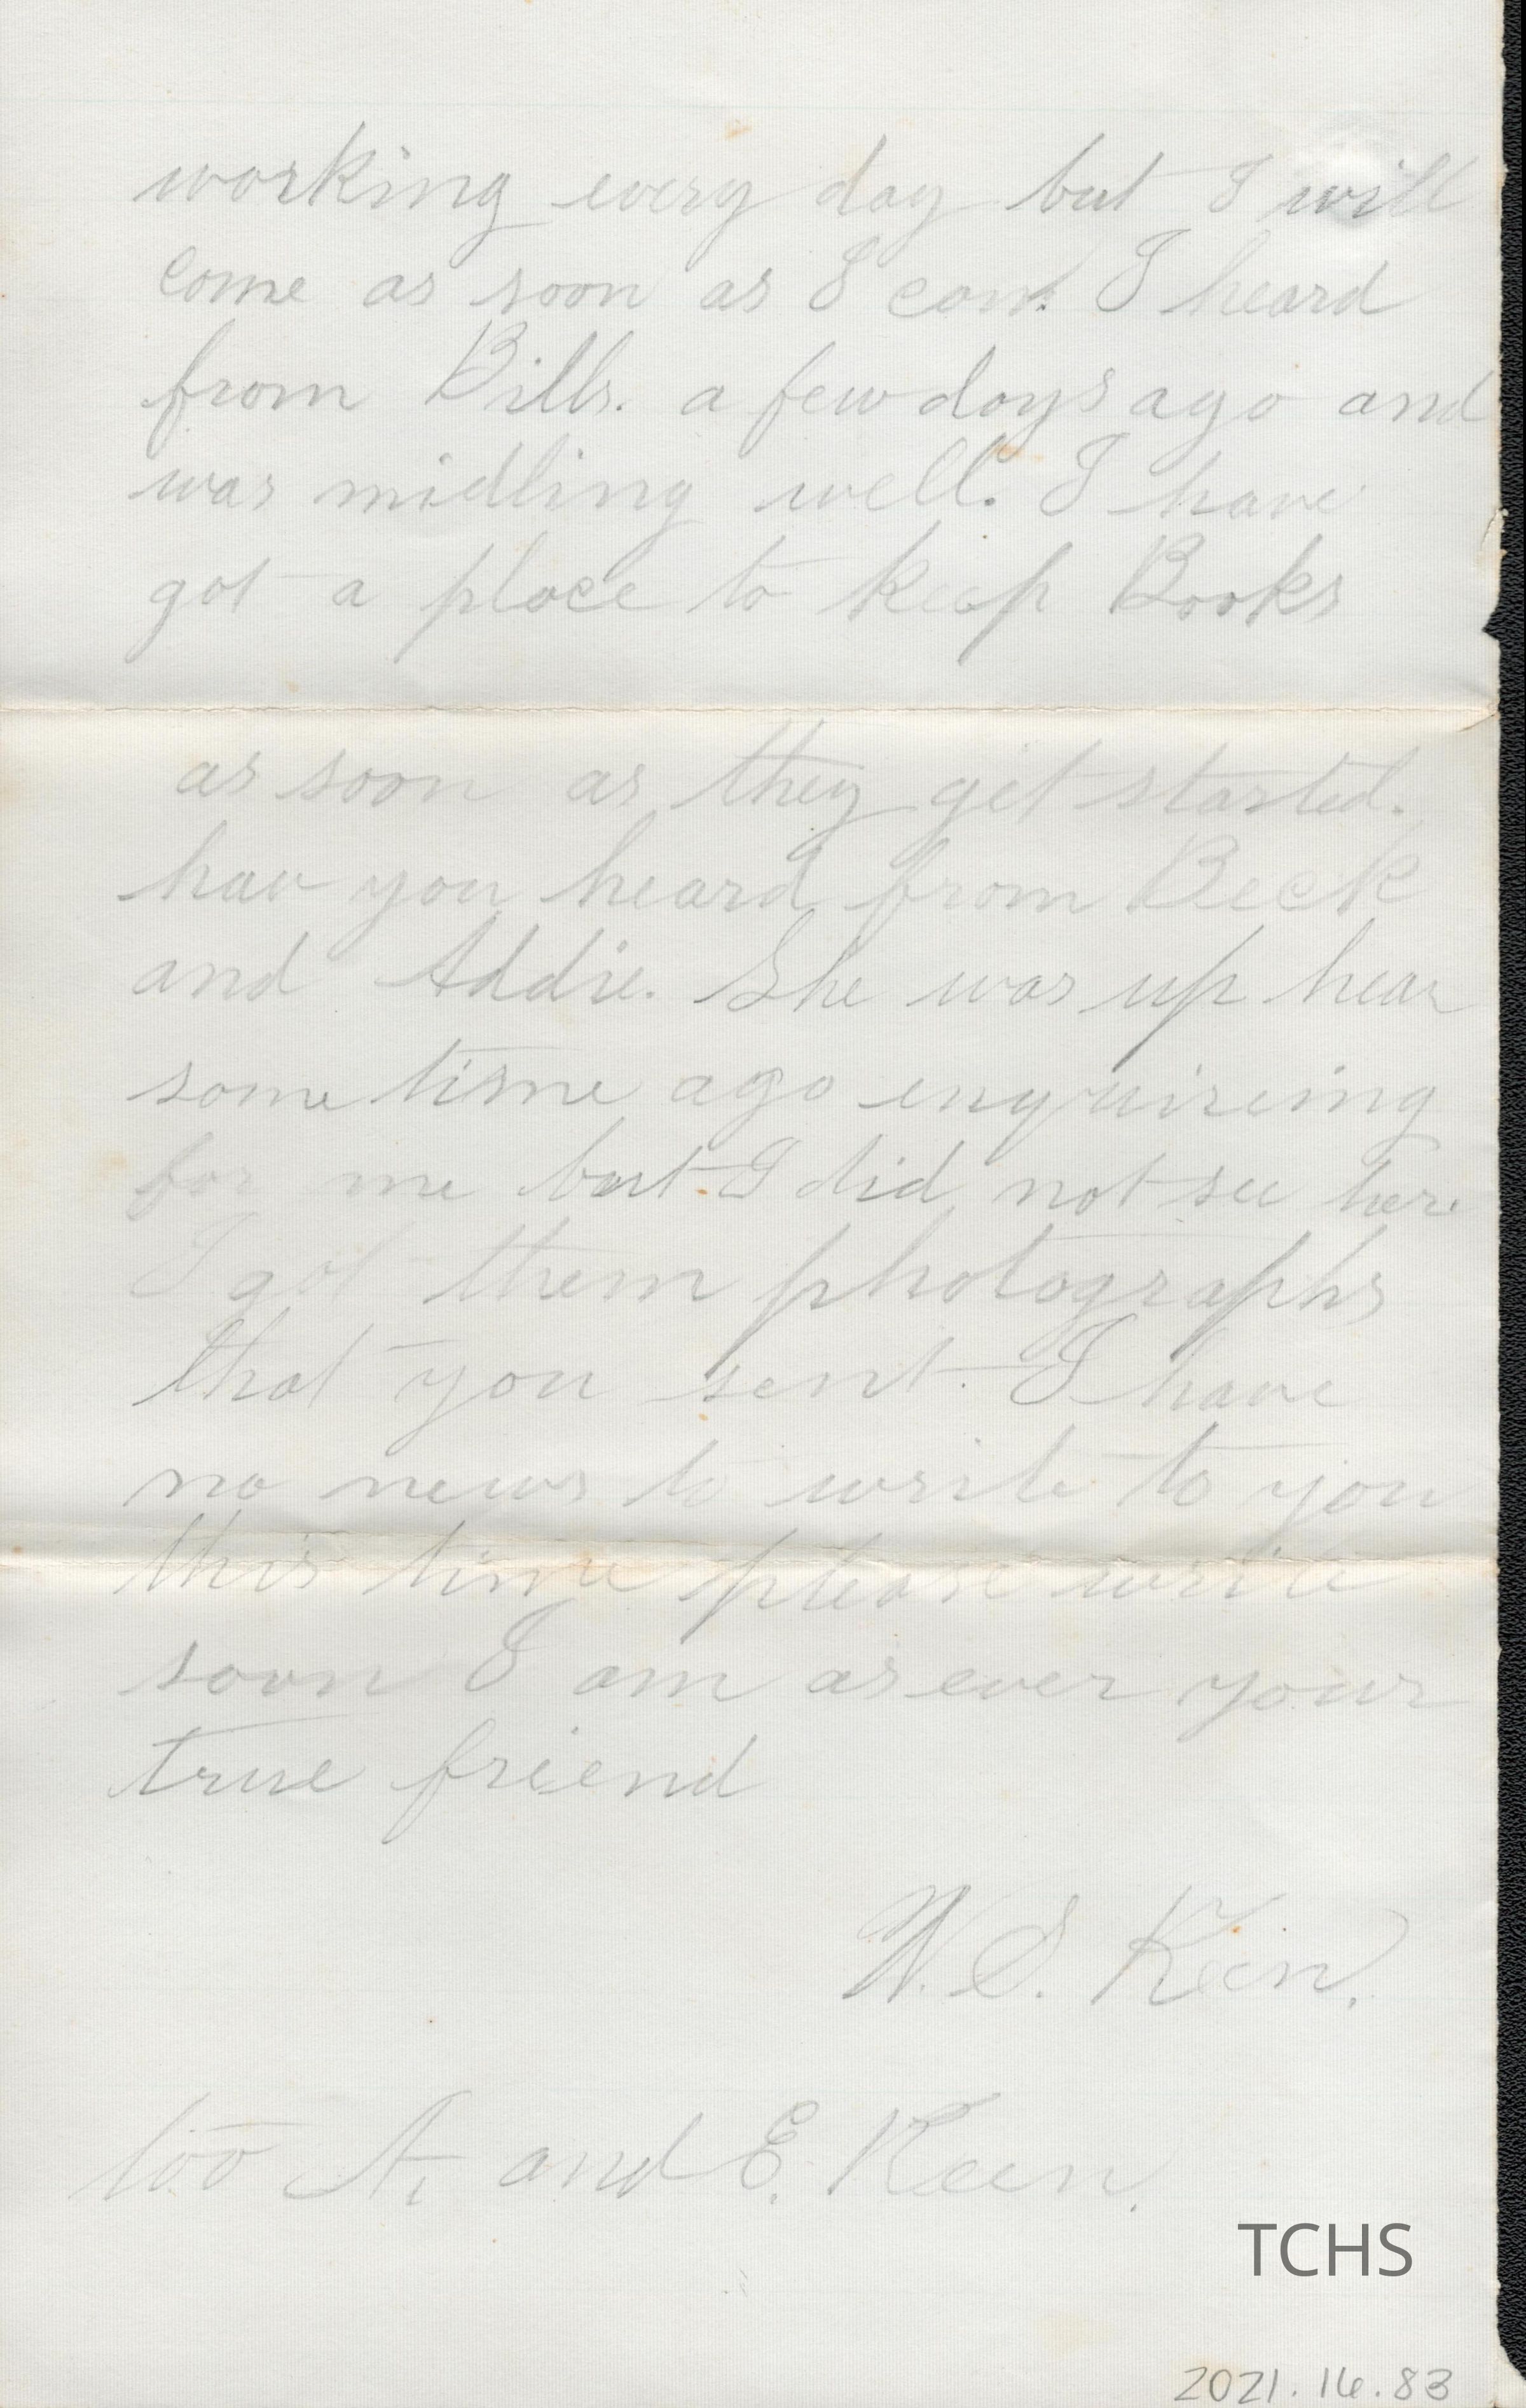 working every day but I will
come as soon as I can. I heard
from Bills. a few days ago and
was midling well. I have
got a place to keep Books
as soon as they get started.
hav you heard from Beck
and Addie. She was up hear
some time ago enquireing
for me but I did not see her.
I got them photographs
that you sent. I have
no news to write to you
this time please write
soon I am as ever your
true friend
W. S. Keen.
too A. and E. Keen.
TCHS
2021.16.83